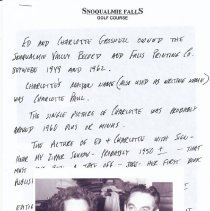 SNOQUALMIE FALLS
GOLF COURSE
ED AND CHARLOTTE GROSHELL OWNED THE
SNOQUALMIE VALLEY RECORD AND FALLS PRINTING CO.
BETWEEN 1949 AND 1962.
CHARLOTTE'S MAIDEN NAME (ALSO USED AS WRITING NAME)
WAS CHARLOTTE PAUL.
THE SINGLE PICTURE OF CHARLOTTE WAS PROBABLY
AROUND 1960 PLUS OR MINUS.
THE PICTURE OF ED + CHARLOTTE WITH
PROBABLY 1950 ± - THAT
MUST
HER FIRST BOOK